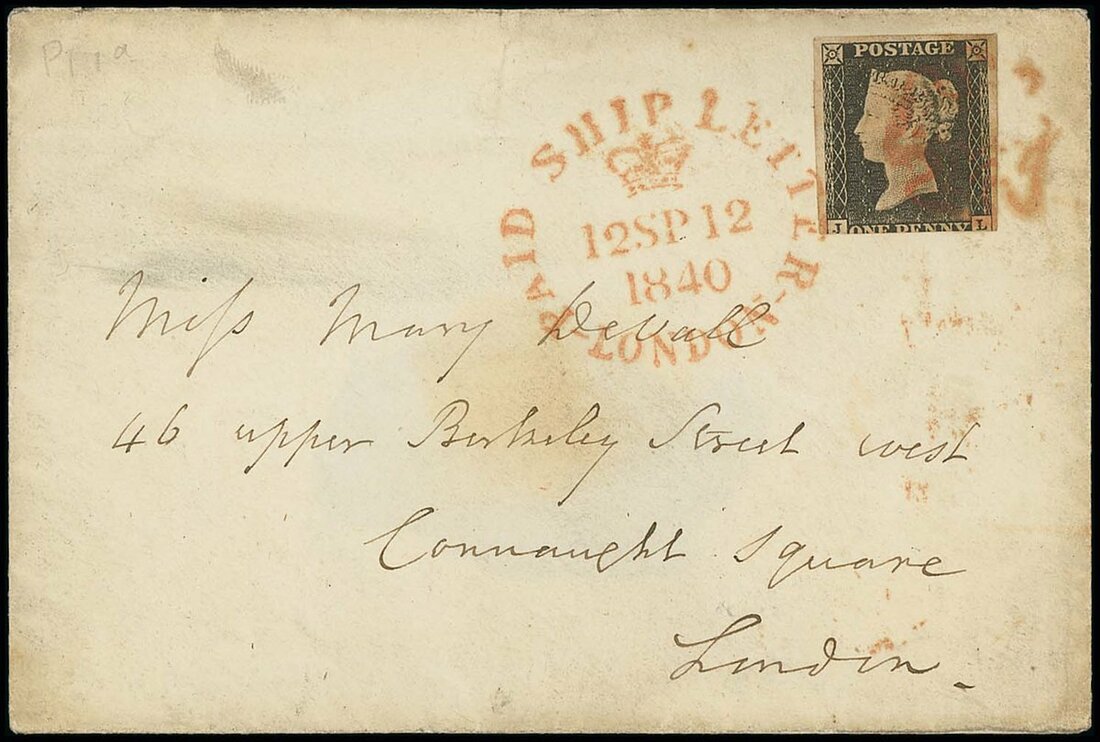 POSTAGE
J ONE PENNY L
PAID SHIP LETTER - LONDON
12SP12
1840
Miss Mary DeVall
46 upper Berkeley Street west
Connaught Square
London